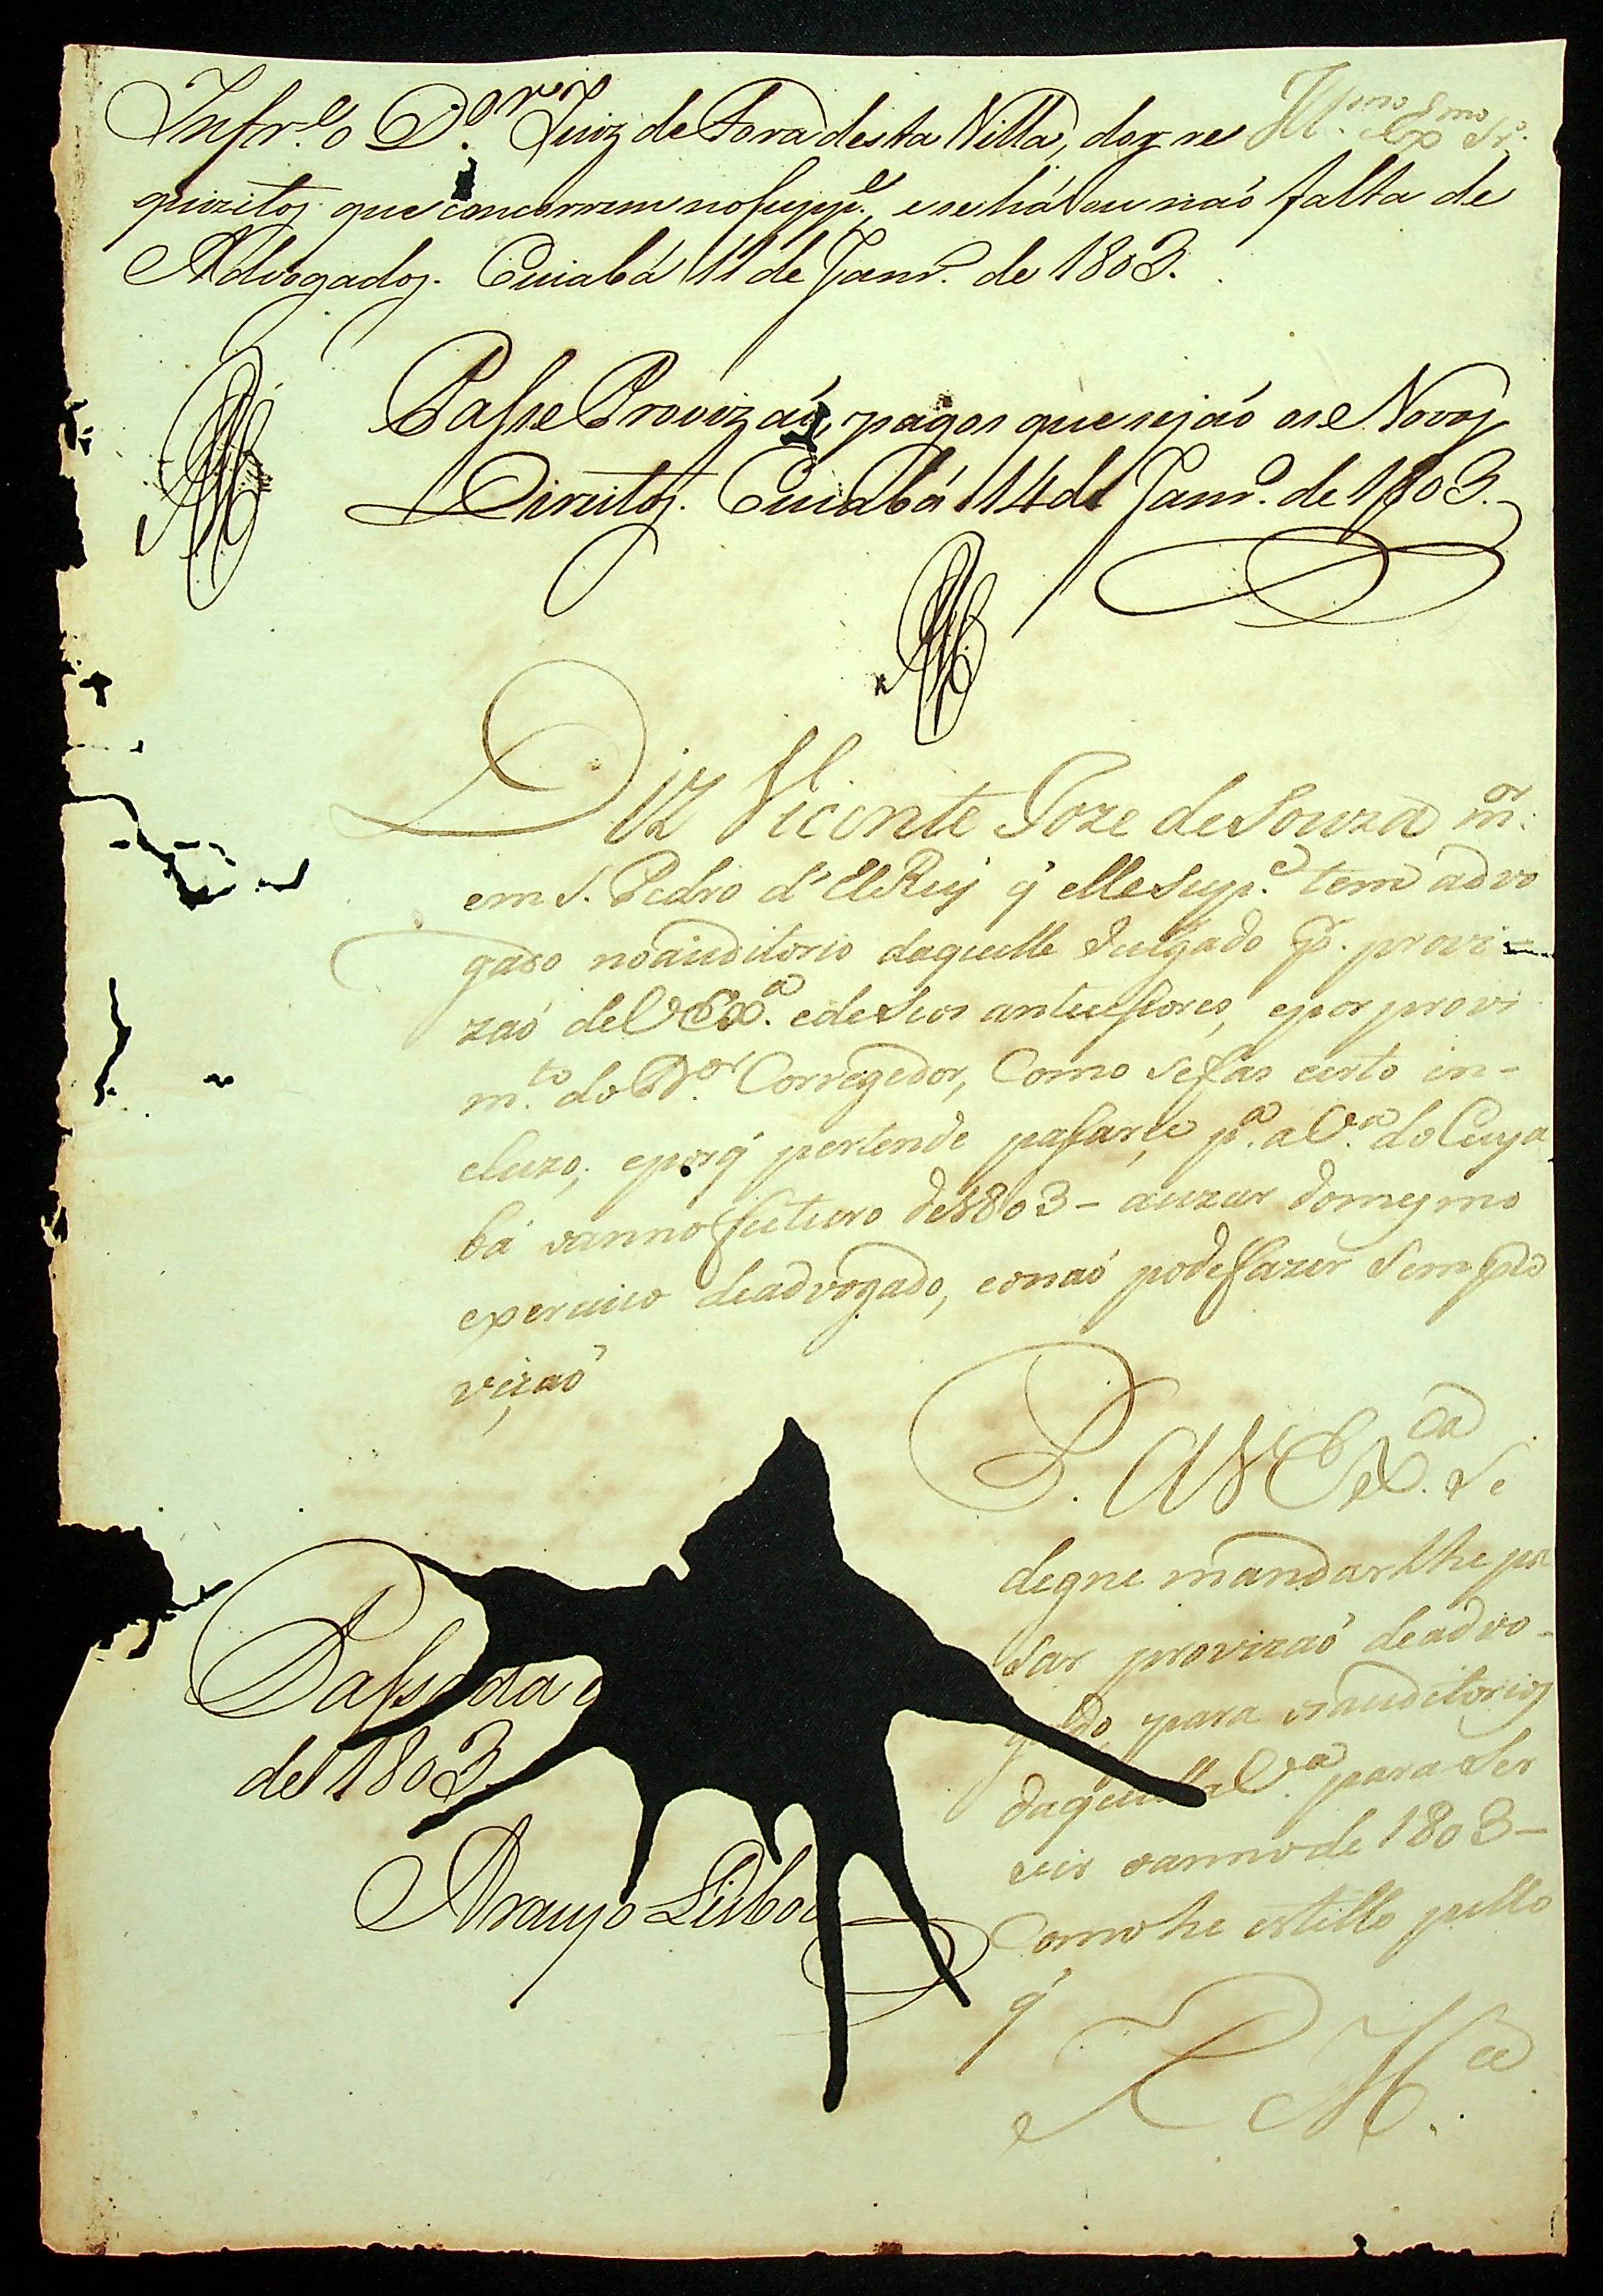 Infr.e o D.or Juiz de Fora desta Villa, dos re
Ill.mo Ex.mo Sr.
quizitos que concorrem no supp.e, e se há ou naó falta de
Advogados. Cuiabá 11 de Janr.o de 1803.
Passe Provizaó, pagos que sejaó os Novos
Direitos. Cuiabá 14 de Janr.o de 1803.
Diz Vicente Joze de Souza m.or
em S. Pedro d'El Rey q' elle Sup.e tem advo
gado no auditorio daquelle Julgado p.r provi-
zaó de V Ex.a e de Seos antecessores, e por provi
m.to do D.or Corregedor, Como se fas certo in-
cluzo; e porq' pertende passarse p.a a V.a do Cuya
bá o anno futuro de 1803 - a uzar do mesmo
exercicio de advogado, e o naó pode fazer Sem pro
vizaó
P. A V Ex.ca Se
degne mandar lhe pas
sar provizaó de advo-
gado, para os auditorios
daquella V.a para Ser
vir o anno de 1803 -
Como he estillo pello
q'
E R M.ce
Passada a
de 1803
Araujo Lisboa